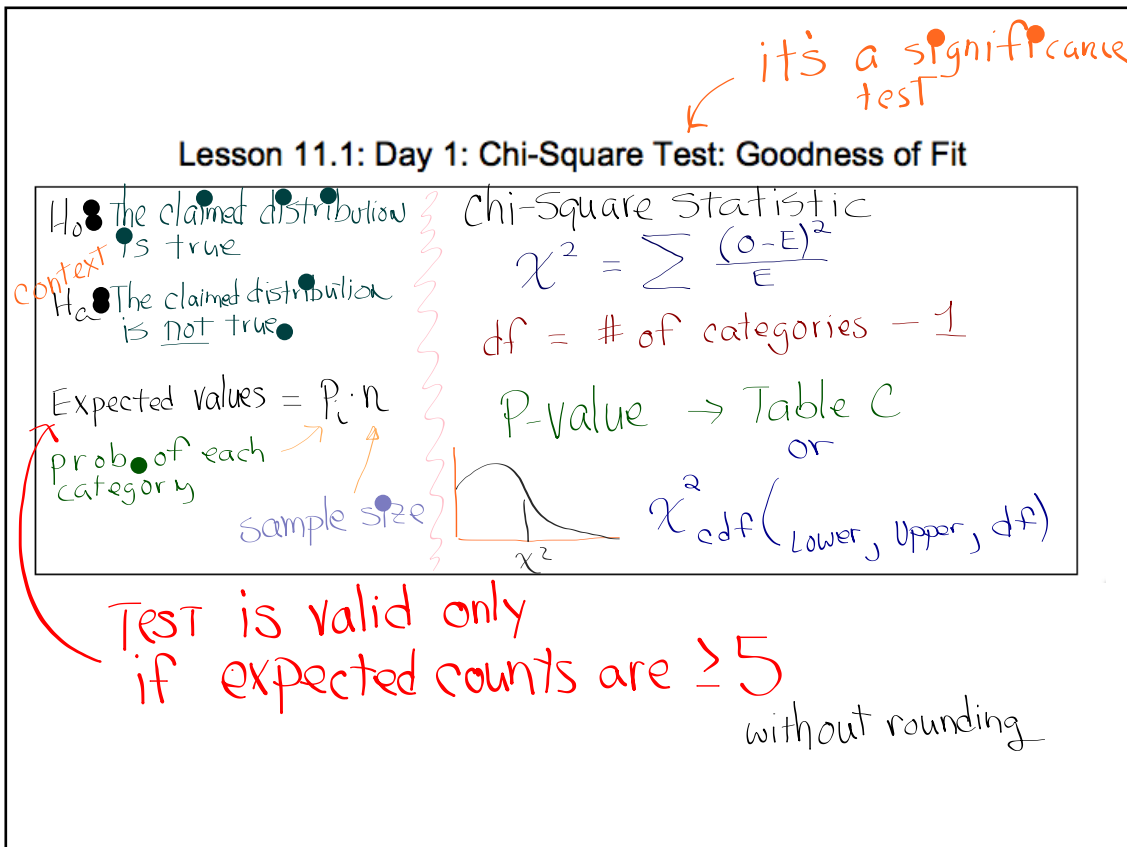 it's a significance
test
Lesson 11.1: Day 1: Chi-Square Test: Goodness of Fit
H₀: The claimed distribution
is true
context
Hₐ: The claimed distribution
is not true.
Expected values = Pᵢ · n
prob. of each
category
sample size
Chi-Square Statistic
χ² = ∑ (O-E)²/E
df = # of categories - 1
P-value → Table C
or
χ²cdf(Lower, Upper, df)
χ²
Test is valid only
if expected counts are ≥ 5
without rounding